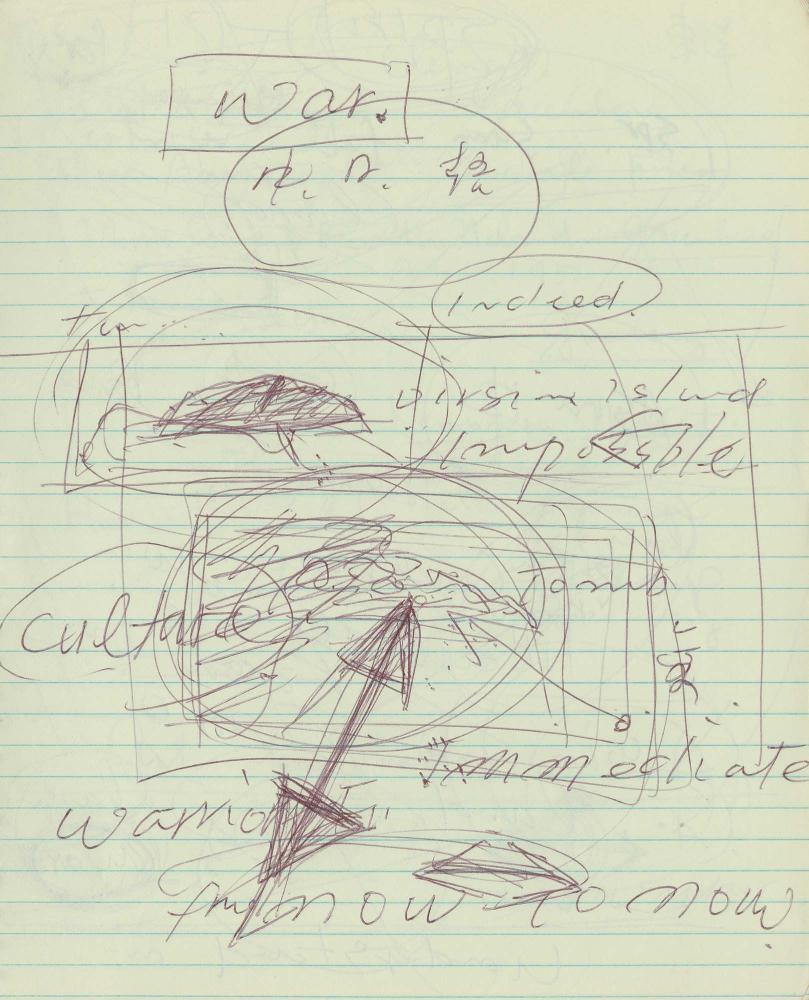 War.
Indeed.
Virgin Island
Impossible
Tomb
Culture
Immediate
Warrior
from now to now